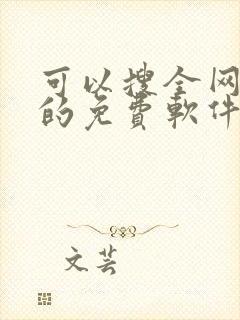 可以搜全网
的免費軟件
文芸